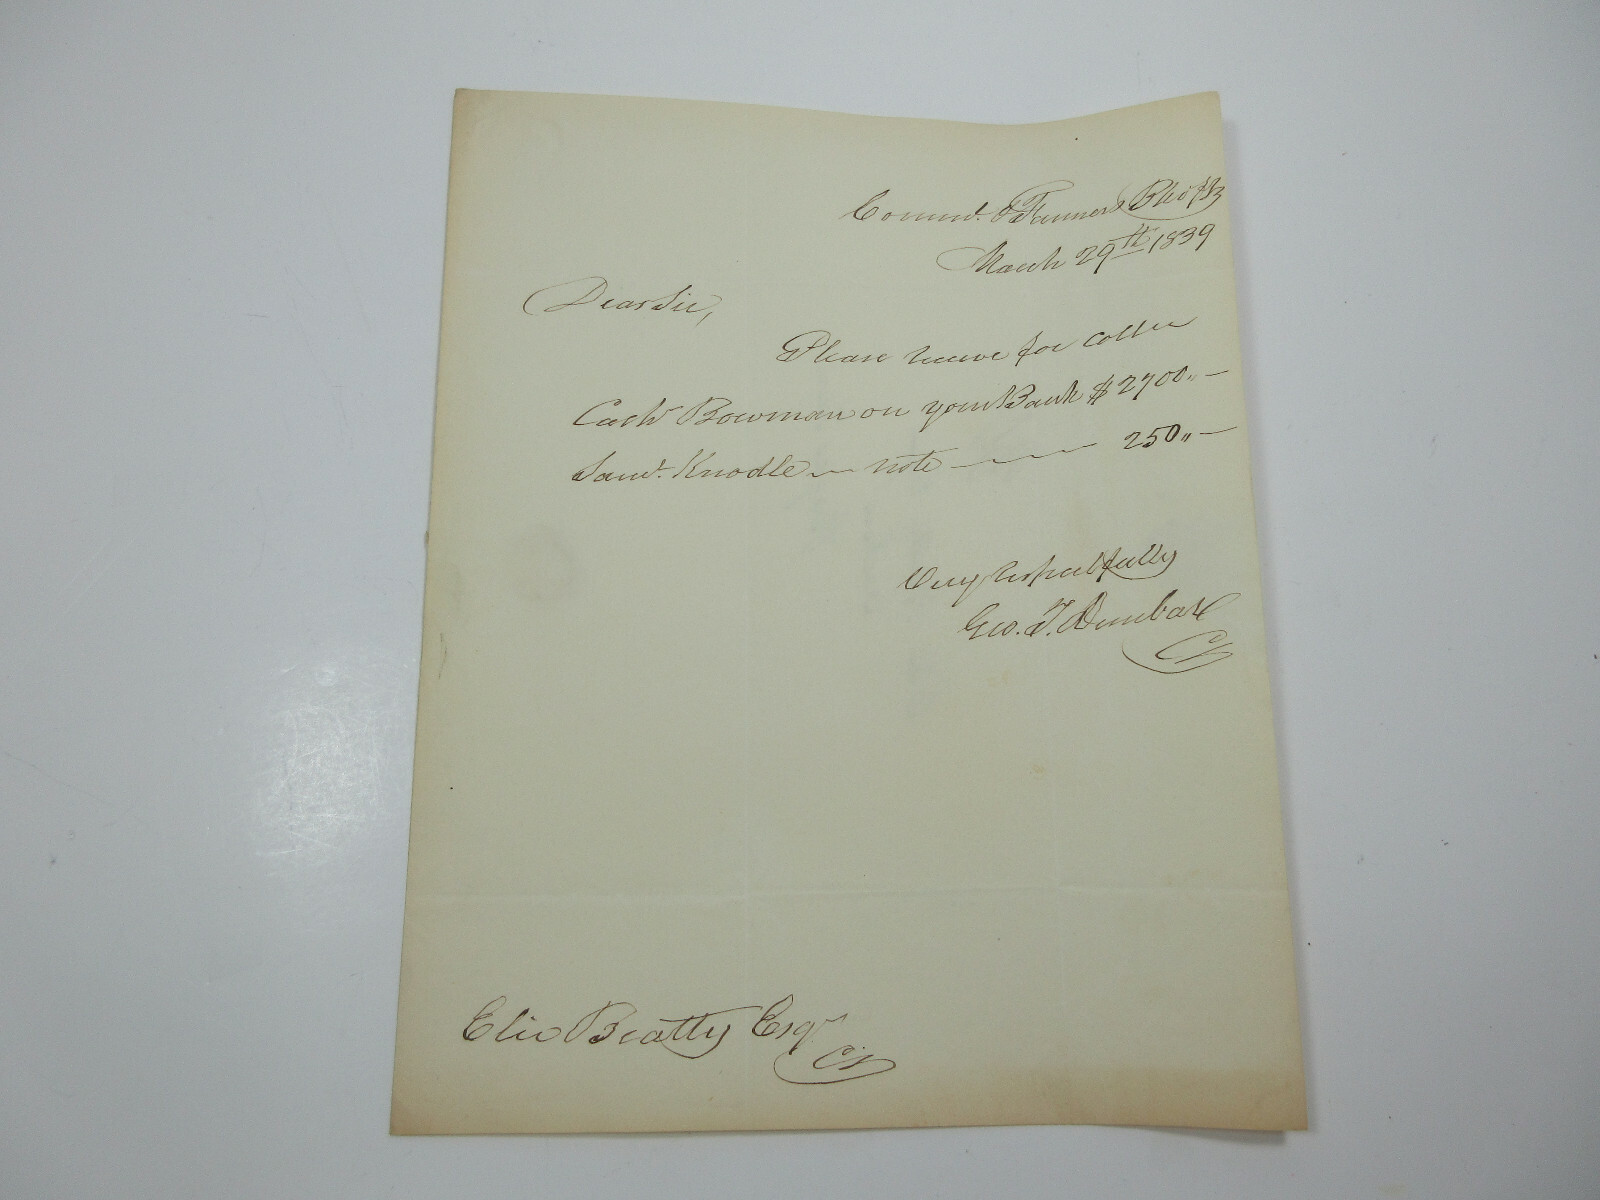 Comml. & Farmers Bk of B
March 29th 1839
Dear Sir,
Please receive for colln
Cashr Bowman on your Bank $2700„—
Saml. Knodle — note — — — 250„—
Very respectfully
Geo. T. Dunbar
Cr
Elie Beatty Esqr
Cr